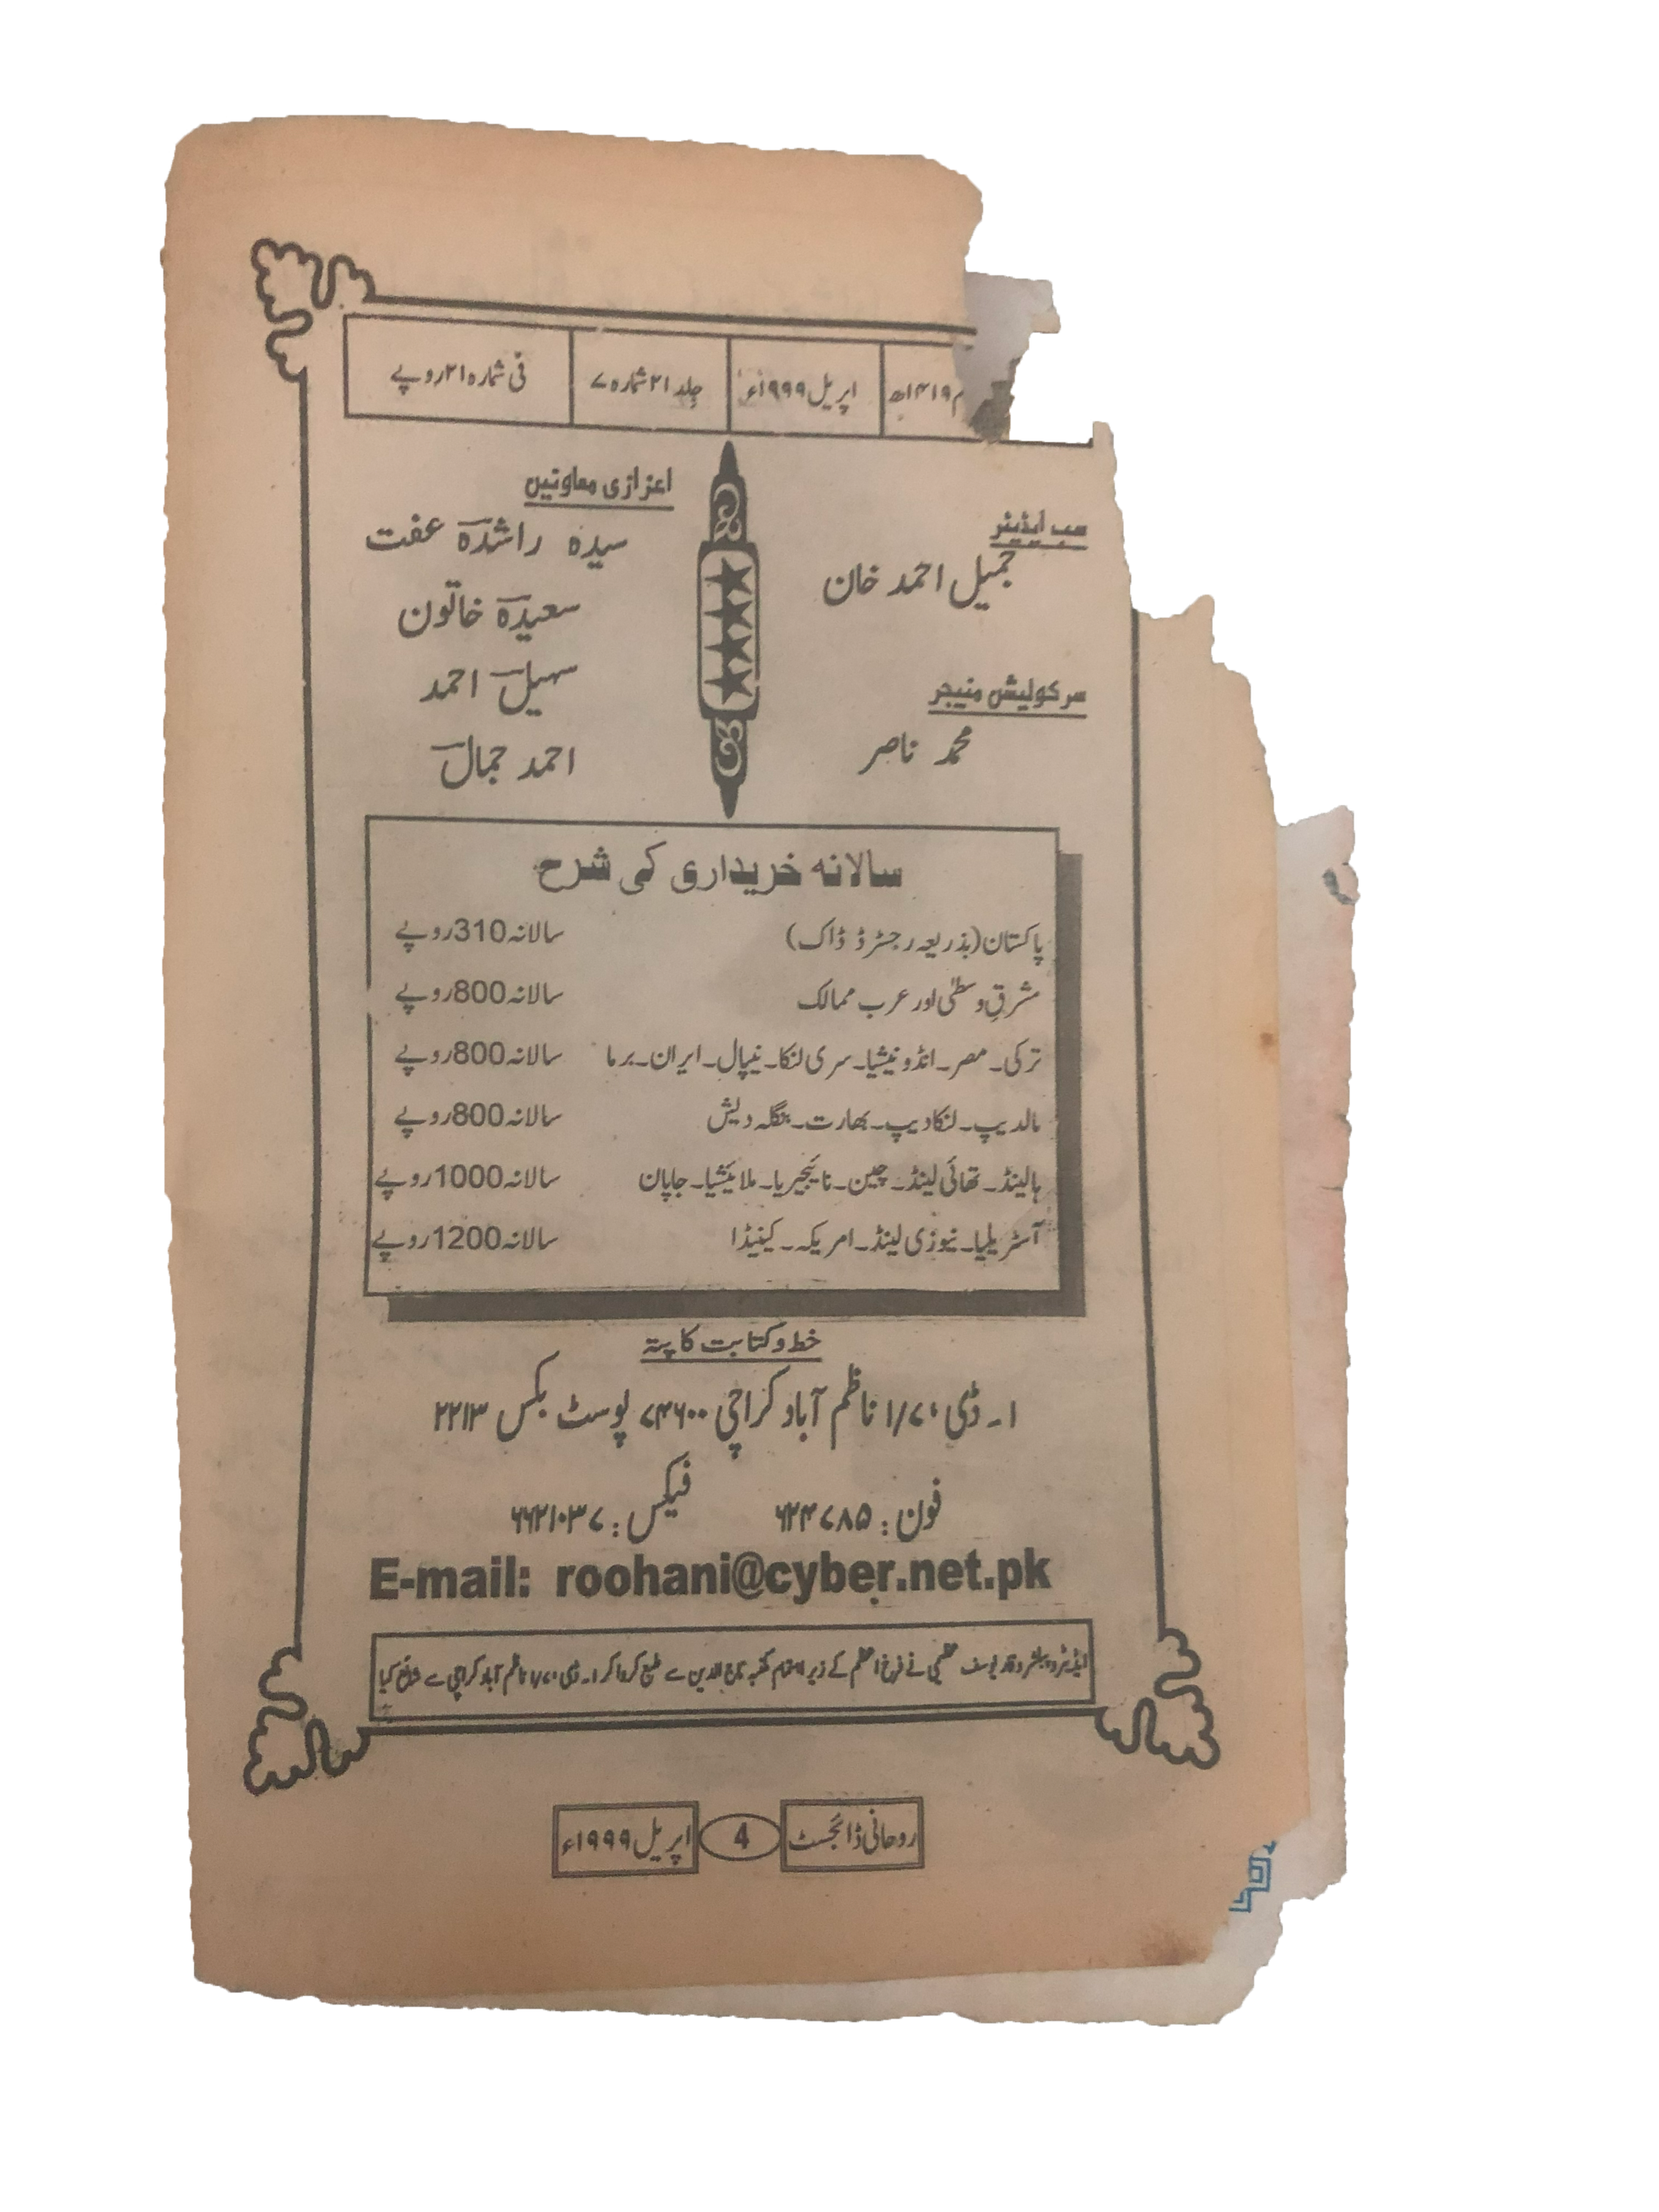 م ۱۴۱۹ھ
اپریل ۱۹۹۹ء
جلد ۲۱ شمارہ ۷
فی شمارہ ۲۱ روپے
سب ایڈیٹر
جمیل احمد خان
سرکولیشن منیجر
محمد ناصر
اعزازی معاونین
سیدہ راشدہ عفت
سعیدہ خاتون
سہیل احمد
احمد جمال
سالانہ خریداری کی شرح
پاکستان (بذریعہ رجسٹرڈ ڈاک) سالانہ 310 روپے
مشرقِ وسطٰی اور عرب ممالک سالانہ 800 روپے
ترکی۔ مصر۔ انڈونیشیا۔ سری لنکا۔ نیپال۔ ایران۔ برما سالانہ 800 روپے
مالدیپ۔ لنکادیپ۔ بھارت۔ بنگلہ دیش سالانہ 800 روپے
ہالینڈ۔ تھائی لینڈ۔ چین۔ نائیجیریا۔ ملائیشیا۔ جاپان سالانہ 1000 روپے
آسٹریلیا۔ نیوزی لینڈ۔ امریکہ۔ کینیڈا سالانہ 1200 روپے
خط و کتابت کا پتہ
۱۔ ڈی ۱/۷، ناظم آباد کراچی ۷۴۶۰۰ پوسٹ بکس ۲۲۱۳
فون : ۶۲۴۷۸۵ فیکس : ۶۶۲۱۰۳۷
E-mail: roohani@cyber.net.pk
ایڈیٹر و پبلشر وقار یوسف عظیمی نے فرخ اعظم کے زیر اہتمام مکتبہ تاج الدین سے طبع کروا کر ۱۔ ڈی ۱/۷، ناظم آباد کراچی سے شائع کیا
روحانی ڈائجسٹ 4 اپریل ۱۹۹۹ء